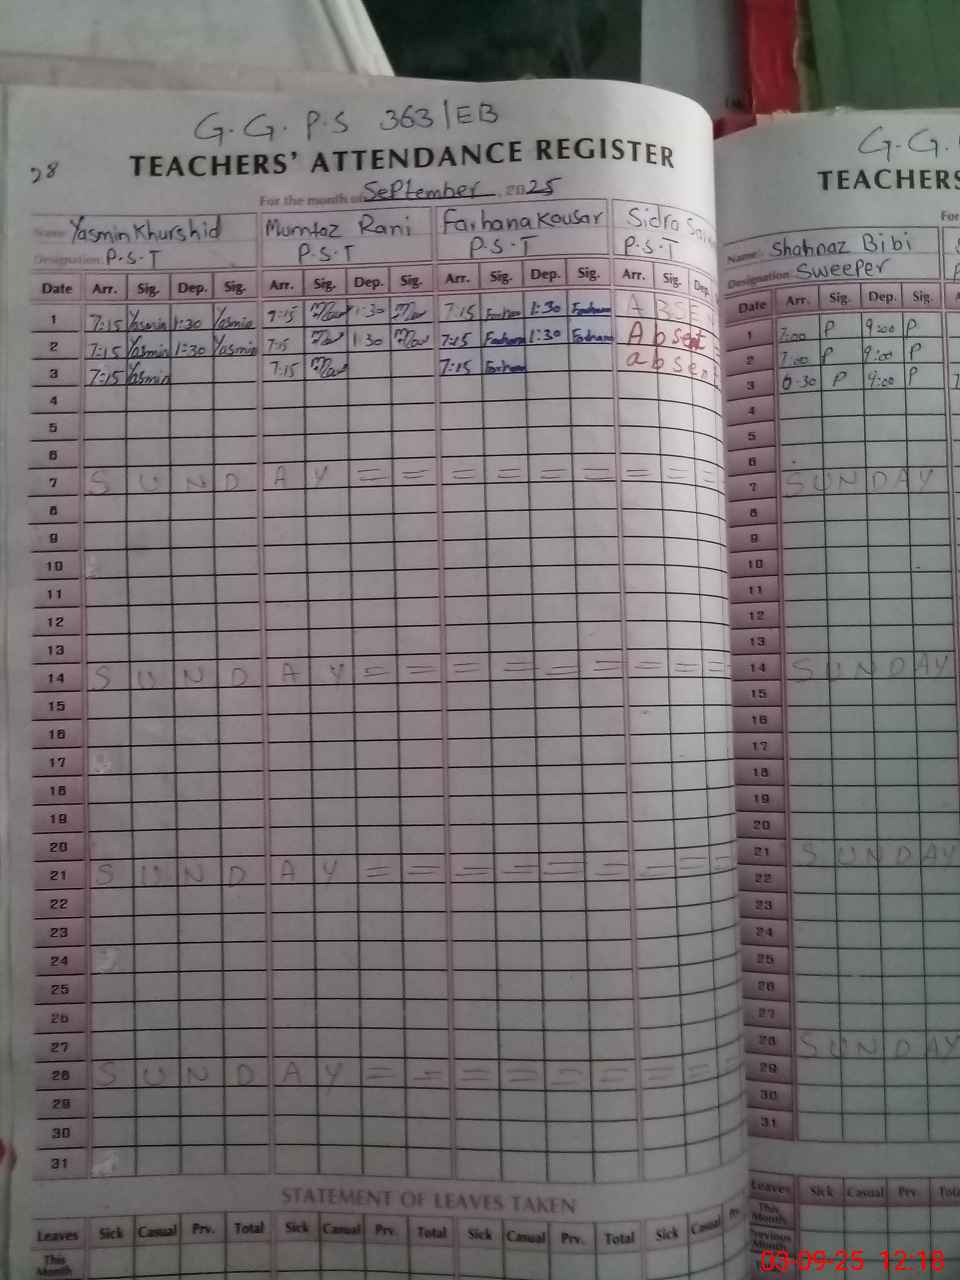 G.G.P.S 363/EB
28
TEACHERS' ATTENDANCE REGISTER
For the month of September 2025
Name: Yasmin Khurshid Mumtaz Rani Farhana Kousar Sidra
Designation: P.S.T P.S.T P.S.T P.S.T
Date Arr. Sig. Dep. Sig. Arr. Sig. Dep. Sig. Arr. Sig. Dep. Sig. Arr. Sig. Dep.
1 7:15 Yasmin 1:30 Yasmin 7:15 1:30 7:15 Farhana 1:30 Farhana ABSE
2 7:15 Yasmin 1:30 Yasmin 7:15 1:30 7:15 Farhana 1:30 Farhana Absent
3 7:15 Yasmin 7:15 7:15 Farhana absent
4
5
6
7 SUNDAY = = = = = = = = =
8
9
10
11
12
13
14 SUNDAY = = = = = = = = =
15
16
17
18
19
20
21 SUNDAY = = = = = = = = =
22
23
24
25
26
27
28 SUNDAY = = = = = = = = =
29
30
31
STATEMENT OF LEAVES TAKEN
Leaves Sick Casual Prv. Total Sick Casual Prv. Total Sick Casual Prv. Total Sick Casual
This Month
G.G.
TEACHERS
For
Name: Shahnaz Bibi
Designation Sweeper
Date Arr. Sig. Dep. Sig. Ar
1 7:00 P 9:00 P
2 7:00 P 9:00 P
3 6:30 P 9:00 P
4
5
6
7 SUNDAY
8
9
10
11
12
13
14 SUNDAY
15
16
17
18
19
20
21 SUNDAY
22
23
24
25
26
27
28 SUNDAY
29
30
31
Leaves Sick Casual Prv. Tot
This Month
Previous Month
03-09-25 12:18